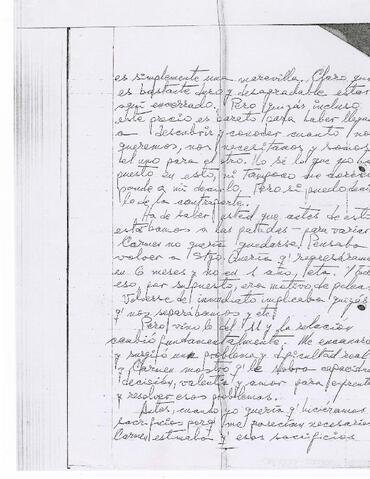 es simplemente una maravilla. Claro que
es bastante duro y desagradable estar
aquí encerrado. Pero quizás, incluso
este precio es barato para saber llegar
a descubrir y conocer cuanto nos
queremos, nos necesitamos y somos
el uno para el otro. No sé lo que yo he
puesto en esto, ni tampoco me corres-
ponde a mi decirlo. Pero si puedo decir
lo de la contraparte.
Ha de saber usted que antes de esto
estabamos a las patadas - para variar
Carmen no quería quedarse. Pensaba
volver a Stgo. Quería q' regresáramos
en 6 meses y no en 1 año, etc. Y todo
eso, por supuesto, era motivo de peleas.
Volverse de inmediato implicaba quizás
q' nos separábamos y etc.
Pero vino lo del y la relación
cambió fundamentalmente. Me encanaron
y surgió un problema y dificultad real
y Carmen mostró q' le sobra capacidad
decisión, valentía y amor para enfrentar
y resolver esos problemas.
Antes, cuando yo quería q' hiciéramos
sacrificios porq' me parecían necesarios
Carmen estimaba q' esos sacrificios